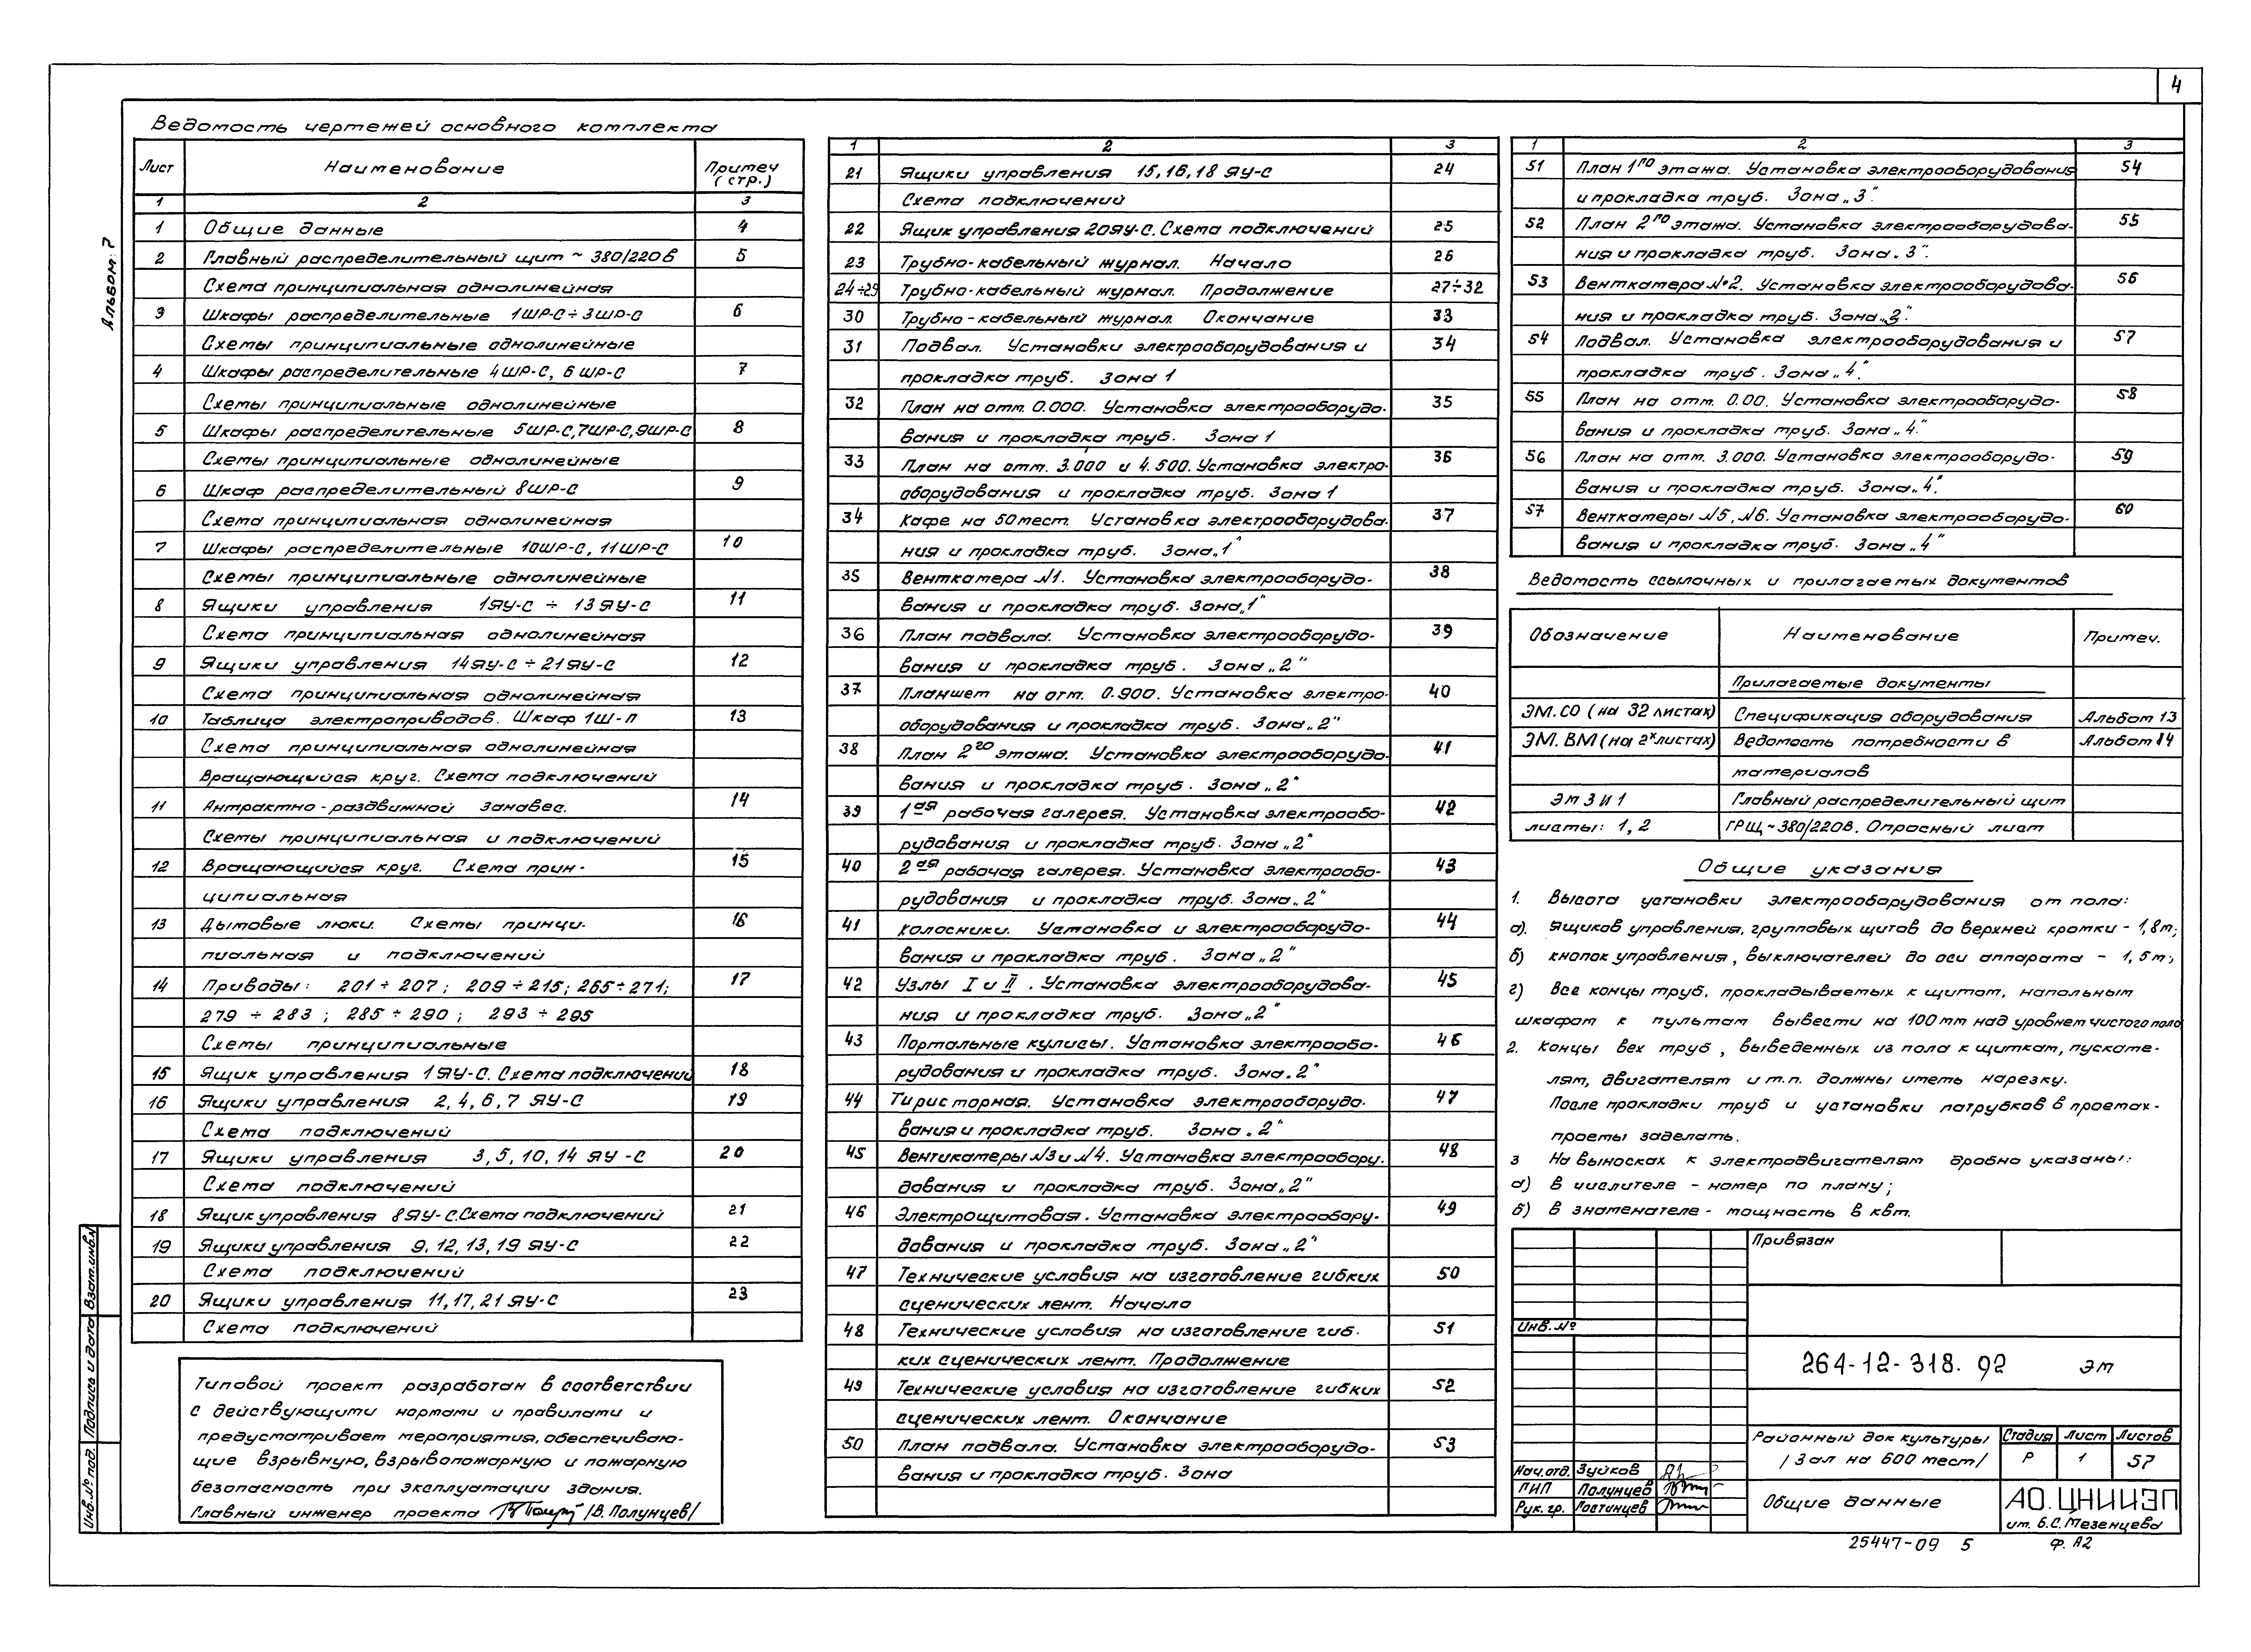 4
Альбом: 7
Ведомость чертежей основного комплекта
Лист Наименование Примеч (стр.)
1 2 3
1 Общие данные 4
2 Главный распределительный щит ~ 380/220в 5
Схема принципиальная однолинейная
3 Шкафы распределительные 1ШР-С ÷ 3ШР-С 6
Схемы принципиальные однолинейные
4 Шкафы распределительные 4ШР-С, 6ШР-С 7
Схемы принципиальные однолинейные
5 Шкафы распределительные 5ШР-С, 7ШР-С, 9ШР-С 8
Схемы принципиальные однолинейные
6 Шкаф распределительный 8ШР-С 9
Схема принципиальная однолинейная
7 Шкафы распределительные 10ШР-С, 11ШР-С 10
Схемы принципиальные однолинейные
8 Ящики управления 1ЯУ-С ÷ 13ЯУ-С 11
Схема принципиальная однолинейная
9 Ящики управления 14ЯУ-С ÷ 21ЯУ-С 12
Схема принципиальная однолинейная
10 Таблица электроприводов. Шкаф 1Ш-П 13
Схема принципиальная однолинейная
Вращающийся круг. Схема подключений
11 Антрактно-раздвижной занавес. 14
Схемы принципиальная и подключений
12 Вращающийся круг. Схема прин- 15
ципиальная
13 Дымовые люки. Схемы принци- 16
пиальная и подключений
14 Приводы: 201 ÷ 207; 209 ÷ 215; 265 ÷ 271; 17
279 ÷ 283; 285 ÷ 290; 293 ÷ 295
Схемы принципиальные
15 Ящик управления 1ЯУ-С. Схема подключений 18
16 Ящики управления 2, 4, 6, 7 ЯУ-С 19
Схема подключений
17 Ящики управления 3, 5, 10, 14 ЯУ-С 20
Схема подключений
18 Ящик управления 8ЯУ-С. Схема подключений 21
19 Ящики управления 9, 12, 13, 19 ЯУ-С 22
Схема подключений
20 Ящики управления 11, 17, 21 ЯУ-С 23
Схема подключений
Типовой проект разработан в соответствии
с действующими нормами и правилами и
предусматривает мероприятия, обеспечиваю-
щие взрывную, взрывопожарную и пожарную
безопасность при эксплуатации здания.
Главный инженер проекта /В. Полунцев/
1 2 3
21 Ящики управления 15, 16, 18 ЯУ-С 24
Схема подключений
22 Ящик управления 20ЯУ-С. Схема подключений 25
23 Трубно-кабельный журнал. Начало 26
24÷29 Трубно-кабельный журнал. Продолжение 27÷32
30 Трубно-кабельный журнал. Окончание 33
31 Подвал. Установки электрооборудования и 34
прокладка труб. Зона 1
32 План на отм. 0.000. Установка электрооборудо- 35
вания и прокладка труб. Зона 1
33 План на отм. 3.000 и 4.500. Установка электро- 36
оборудования и прокладка труб. Зона 1
34 Кафе на 50 мест. Установка электрооборудова- 37
ния и прокладка труб. Зона „1"
35 Венткамера №1. Установка электрооборудо- 38
вания и прокладка труб. Зона „1"
36 План подвала. Установка электрооборудо- 39
вания и прокладка труб. Зона „2"
37 Планшет на отм. 0.900. Установка электро- 40
оборудования и прокладка труб. Зона „2"
38 План 2го этажа. Установка электрооборудо- 41
вания и прокладка труб. Зона „2"
39 1ая рабочая галерея. Установка электрообо- 42
рудования и прокладка труб. Зона „2"
40 2ая рабочая галерея. Установка электрообо- 43
рудования и прокладка труб. Зона „2"
41 Колосники. Установка и электрооборудо- 44
вания и прокладка труб. Зона „2"
42 Узлы I и II. Установка электрооборудова- 45
ния и прокладка труб. Зона „2"
43 Портальные кулисы. Установка электрообо- 46
рудования и прокладка труб. Зона „2"
44 Тиристорная. Установка электрооборудо- 47
вания и прокладка труб. Зона „2"
45 Вентикамеры №3 и №4. Установка электрообору- 48
дования и прокладка труб. Зона „2"
46 Электрощитовая. Установка электрообору- 49
дования и прокладка труб. Зона „2"
47 Технические условия на изготовление гибких 50
сценических лент. Начало
48 Технические условия на изготовление гиб- 51
ких сценических лент. Продолжение
49 Технические условия на изготовление гибких 52
сценических лент. Окончание
50 План подвала. Установка электрооборудо- 53
вания и прокладка труб. Зона
1 2 3
51 План 1го этажа. Установка электрооборудования 54
и прокладка труб. Зона „3".
52 План 2го этажа. Установка электрооборудова- 55
ния и прокладка труб. Зона „3".
53 Венткамера №2. Установка электрооборудова- 56
ния и прокладка труб. Зона „3".
54 Подвал. Установка электрооборудования и 57
прокладка труб. Зона „4".
55 План на отм. 0.00. Установка электрооборудо- 58
вания и прокладка труб. Зона „4."
56 План на отм. 3.000. Установка электрооборудо- 59
вания и прокладка труб. Зона „4".
57 Венткамеры №5, №6. Установка электрооборудо- 60
вания и прокладка труб. Зона „4"
Ведомость ссылочных и прилагаемых документов
Обозначение Наименование Примеч.
Прилагаемые документы
ЭМ.СО (на 32 листах) Спецификация оборудования Альбом 13
ЭМ.ВМ (на 2х листах) Ведомость потребности в Альбом 14
материалов
ЭМ ЗИ1 Главный распределительный щит
листы: 1, 2 ГРЩ ~ 380/220в. Опросный лист
Общие указания
1. Высота установки электрооборудования от пола:
а). Ящиков управления, групповых щитов до верхней кромки - 1,8м;
б) кнопок управления, выключателей до оси аппарата - 1,5м;
г) все концы труб, прокладываемых к щитам, напольным
шкафам к пультам вывести на 100мм над уровнем чистого пола
2. Концы вех труб, выведенных из пола к щиткам, пускате-
лям, двигателям и т.п. должны иметь нарезку.
После прокладки труб и установки патрубков в проемах-
проемы заделать.
3 На выносках к электродвигателям дробно указаны:
а) в числителе - номер по плану;
б) в знаменателе - мощность в квт.
Привязан
Инв. №
264-12-318.92 ЭМ
Районный дом культуры
/Зал на 600 мест/
Стадия Лист Листов
Р 1 57
Нач. отд. Зуйков
ГИП Полунцев
Рук. гр. Гостинцев
Общие данные
АО. ЦНИИЭП
им. Б.С. Мезенцева
25447-09 5 Ф. А2
Взам. инв. №
Подпись и дата
Инв. № под.